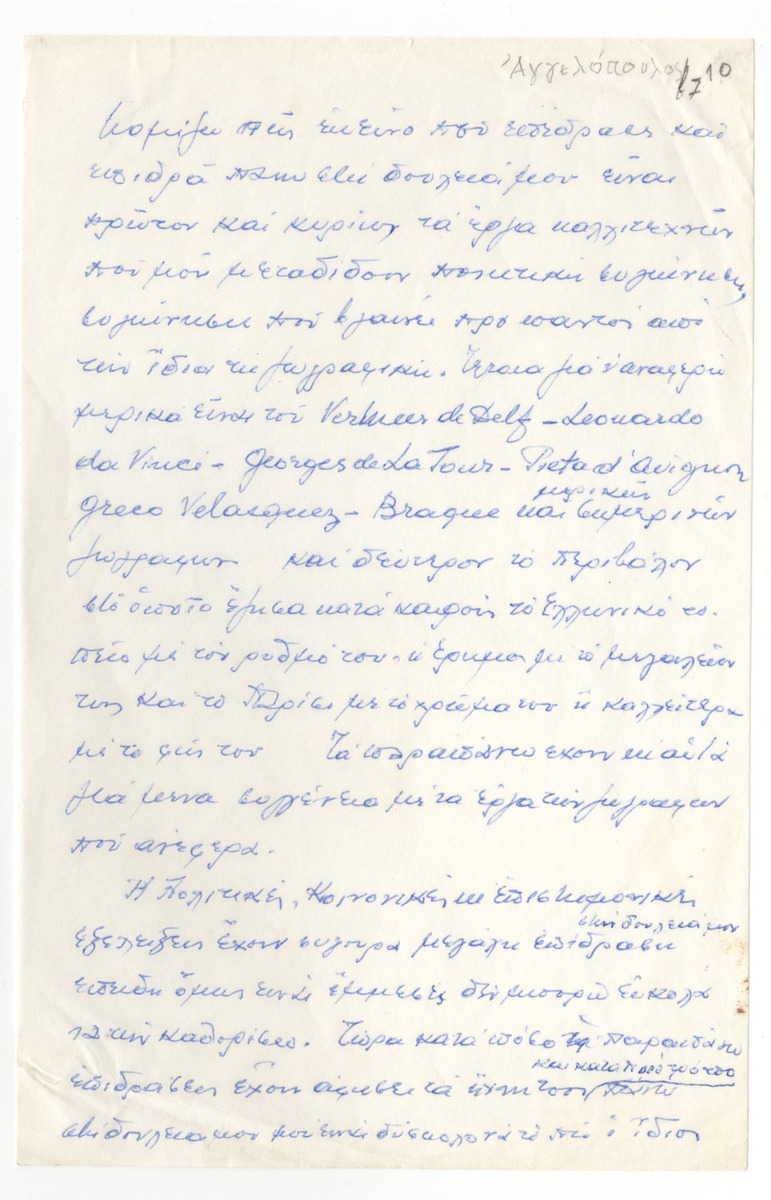 Ἀγγελόπουλος 10
Νομίζω πώς ἐκεῖνο πού ἐπέδρασε καί
ἐπιδρᾶ πάνω στή δουλειά μου εἶναι
πρῶτον καί κυρίως τά ἔργα καλλιτεχνῶν
πού μοῦ μεταδίδουν ποιητική συγκίνηση,
συγκίνηση πού βγαίνει προ παντός ἀπό
τήν ἴδια τή ζωγραφική. Τέτοια γιά ν'αναφέρω
μερικά εἶναι τοῦ Vermeer de Delf – Leonardo
da Vinci – Georges de La Tour – Pieta d'Avignon
Greco Velasquez – Braque καί
μερικῶν
σημερινῶν
ζωγραφων καί δεύτερον τό περιβάλον
στό ὁποῖο ἔζησα κατά καιρούς τό Ἑλληνικό το-
πεῖο μέ τόν ρυθμό του. ἡ ἔρημος με τό μεγαλεῖο
της και το Παρίσι με τό χρῶμα του ἤ καλλίτερα
μέ το φῶς του Τά παραπάνω εχουν κι αὐτά
γιά μενα συγγένεια με τα ἔργα τῶν ζωγραφων
πού ανεφερα.
Ἡ Πολιτικές, Κοινονικές κι' ἐπιστημονικές
ἐξελείξεις ἔχουν σιγουρα μεγάλη ἐπίδραση
στήν δουλειά μου
ἐπειδή ὅμως εἶναι ἔμμεσες δέν μπορῶ εὔκολα
να τήν καθορίσω. Τώρα κατά πόσο ἡ παραπάνω
ἐπιδράσεις ἔχουν ἀφήσει τά ἴχνη τους πάνω
και κατα ποιό τρόπο
στή δουλειά μου μοῦ εἶναι δύσκολο νά τό πῶ ὁ ἴδιος